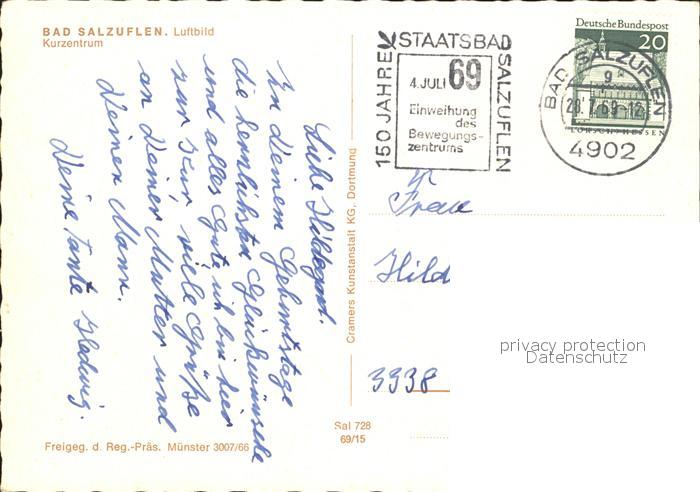 BAD SALZUFLEN. Luftbild
Kurzentrum
Liebe Hildegard.
Zu Deinem Geburtstage
die herzlichsten Glückwünsche
und alles Gute ich bin hier
zur Kur, viele Grüße
an Deiner Mutter und
Deinen Mann.
Deine Tante Hedwig.
Freigeg. d. Reg.-Präs. Münster 3007/66
Cramers Kunstanstalt KG, Dortmund
Sal 728
69/15
150 JAHRE STAATSBAD SALZUFLEN
4.JULI 69
Einweihung
des
Bewegungs-
zentrums
Deutsche Bundespost
20
LORSCH·HESSEN
BAD SALZUFLEN
g
28.7.69-12
4902
Frau
Hild
3338
privacy protection
Datenschutz